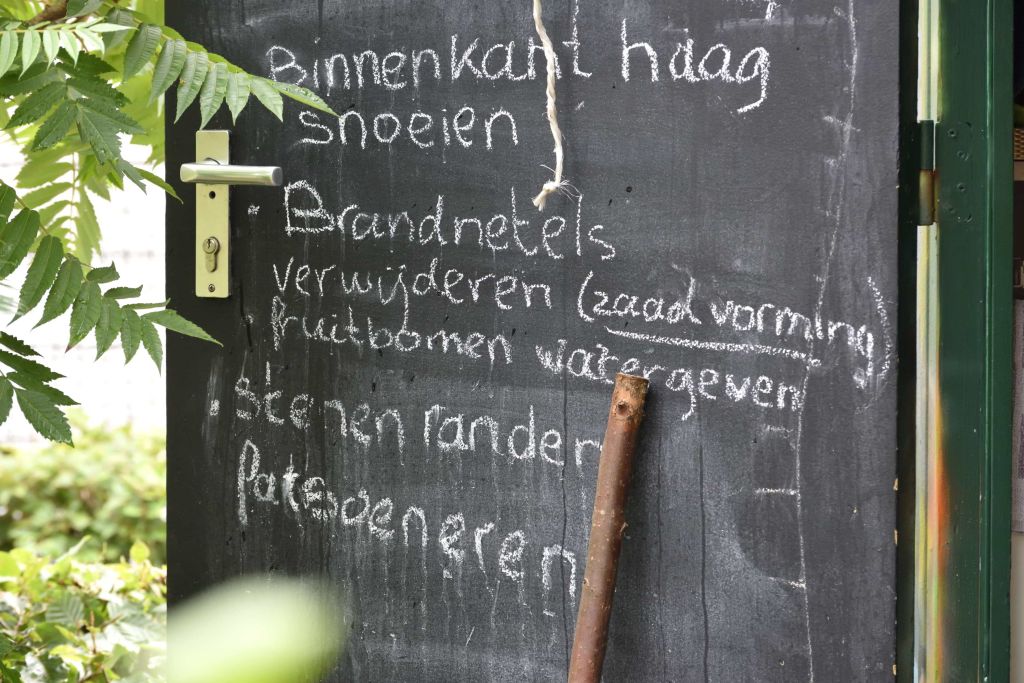 Binnenkant haag
snoeien
· Brandnetels
verwijderen (zaadvorming)
fruitbomen watergeven
· stenen randen
fatsoeneren